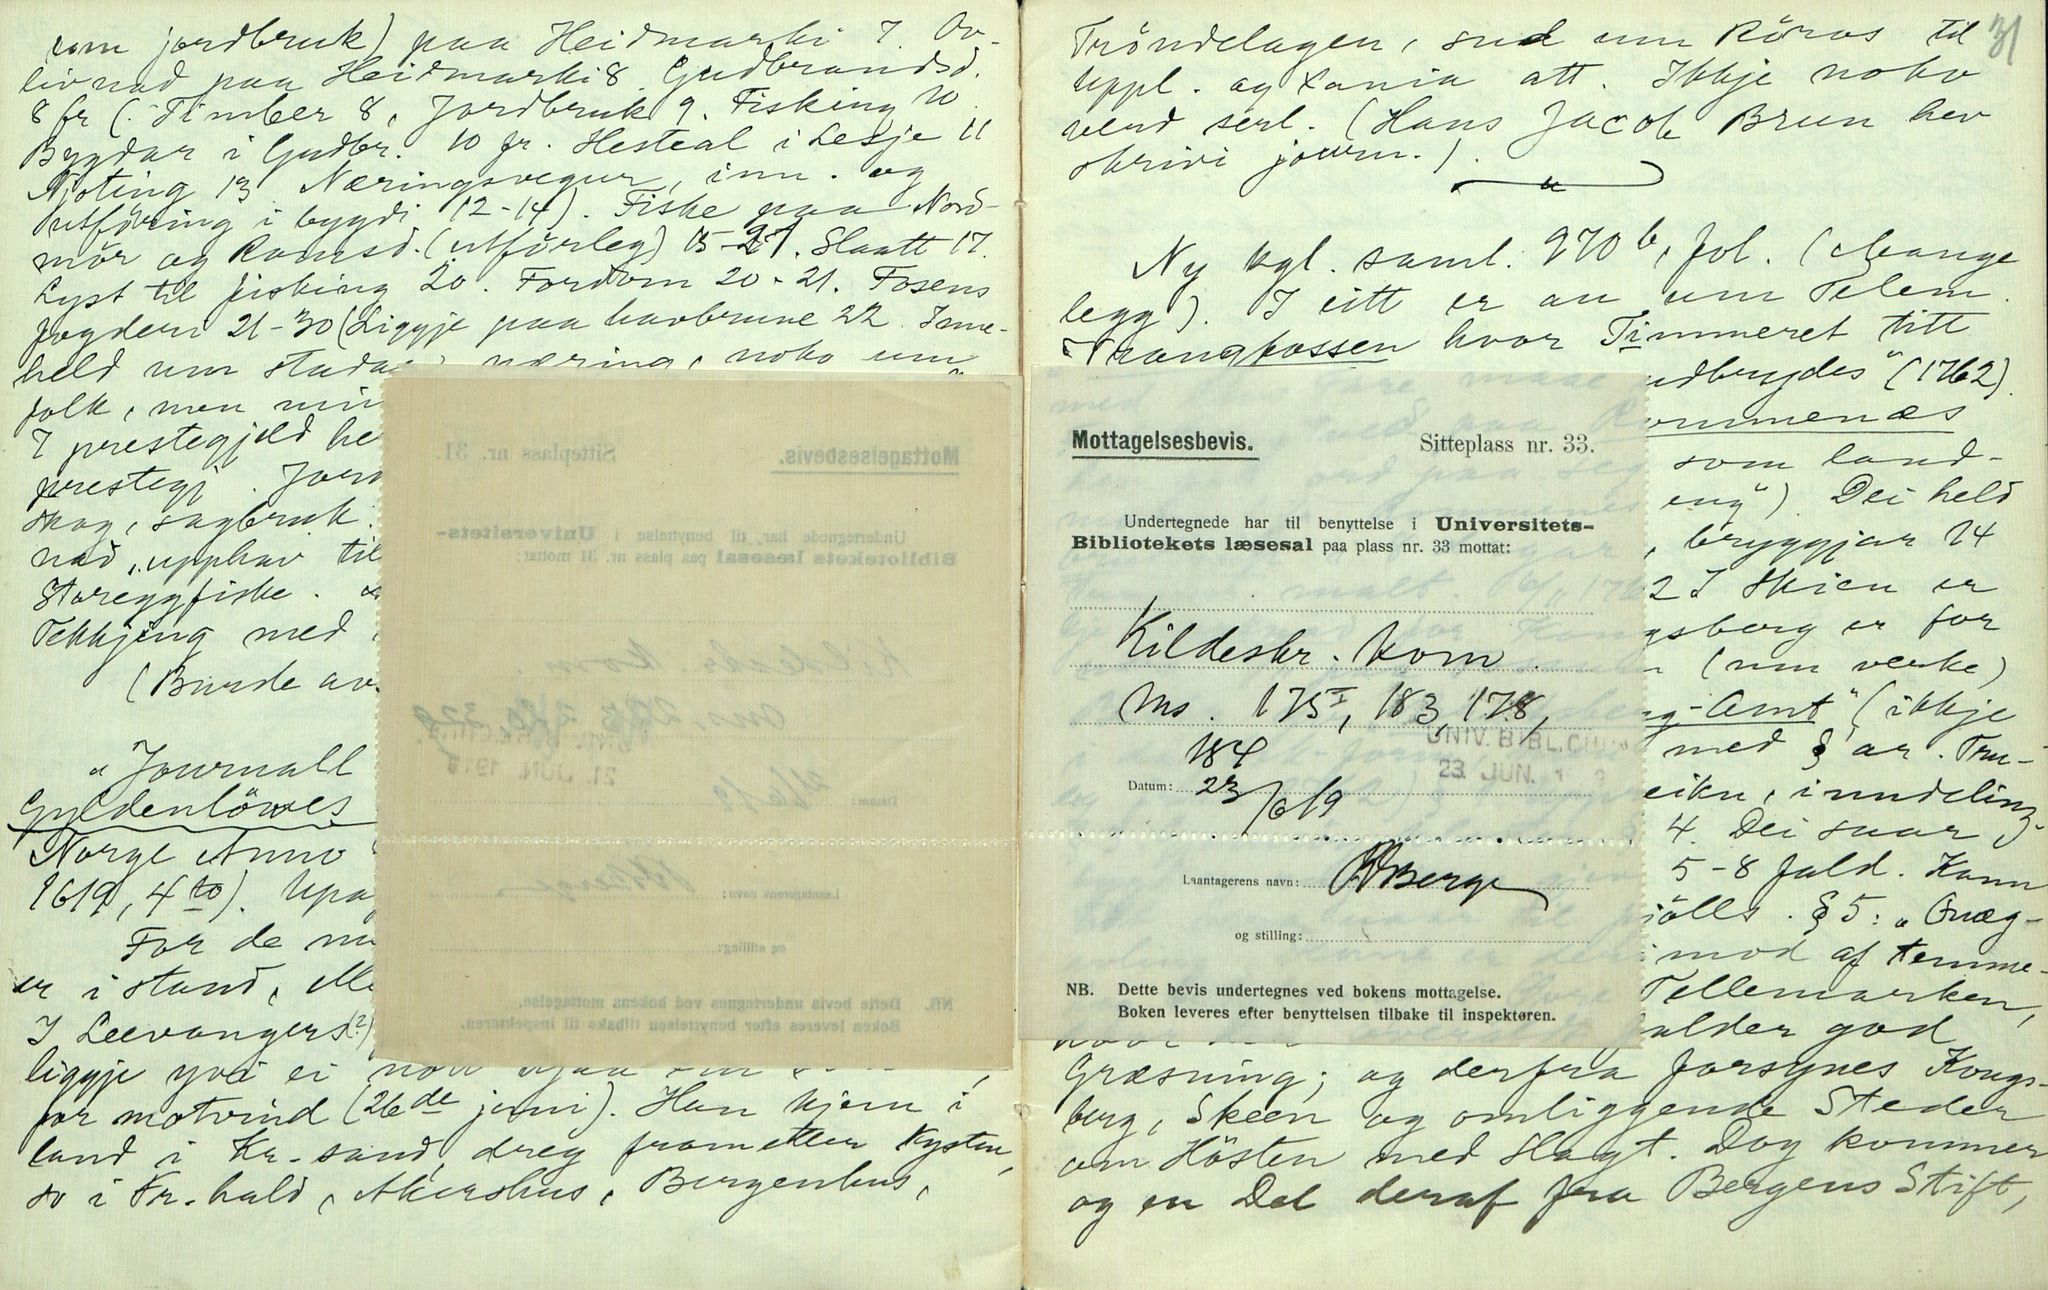 som jordbruk) paa Heidmarki 7. Ov-
livnad paa Heidmarki 8 Gudbrandsd.
8 fr (: Timber 8, Jordbruk 9. Fisking 10
Bygdar i Gudbr. 10 fr. Hesteal i Lesje 11
Njoting 13 Næringsvegur, inn- og
utföring i bygdi 12-14). Fiske paa Nord-
mör og Romsd. (utförleg) 15-21. Slaatt 17.
Lyst til fisking 20. Fordom 20-21. Fosens
fogderi 21-30 (Liggje paa havbrune 22. Inne-
held um stada, næring, noko um
folk, men
I prestegjeld he
prestegj. Jord
skog, sagbruk.
nad, upphav til
Storeggfiske.
Tekkjing med
(Burde av
"Journall
Gyldenlöwes
Norge Anno
1619, 4to). Upa
For de
er i stand, elle
I Leevangers(?)
liggje yvi ei
for motvind (26de juni). Han kjem i
land i Kr.sand, dreg frametter Kysten,
so i Fr.hald, Akershus, Bergenhus,
31
Tröndelagen, sud um Röros til
Uppl. og Xania att. Ikkje noko
verd serl. (Hans Jacob Brun hev
skrivi journ.).
Ny kgl. saml. 270 b, fol. (Mange
legg). I eitt er au um Telem.
Vrangfossen hvor Timmeret titt
udbrydes" (1762).
ommenæs
som land-
eng"). Dei held
, bryggjar 14
2 I Skien er
gsberg er for
(um verke)
g-Amt" (ikkje
med § ar. Tru-
eiku, inndeling
4. Dei saar
5-8 fald. Kann
§5: "Qvæg-
imod af temme-
Tellemarken,
alder god
Græsning; og derfra forsynes Kongs-
berg, Skeen og omliggende Steder
om Hösten med Slagt. Dog kommer
og en Del deraf fra Bergens Stift,
Mottagelsesbevis. Sitteplass nr. 31.
Undertegnede har til benyttelse i Universitets-
Bibliotekets læsesal paa plass nr. 31 mottat:
Kildeskr. kom
21. JUN. 1919
Datum: 21/6 19
Laantagerens navn: RBerge
og stilling:
NB. Dette bevis undertegnes ved bokens mottagelse.
Boken leveres efter benyttelsen tilbake til inspektøren.
Mottagelsesbevis. Sitteplass nr. 33.
Undertegnede har til benyttelse i Universitets-
Bibliotekets læsesal paa plass nr. 33 mottat:
Kildeskr. kom.
Ms. 175 I, 183, 178,
184
UNIV. BIBL.
23. JUN.
Datum: 23/6 19
Laantagerens navn: RBerge
og stilling:
NB. Dette bevis undertegnes ved bokens mottagelse.
Boken leveres efter benyttelsen tilbake til inspektøren.